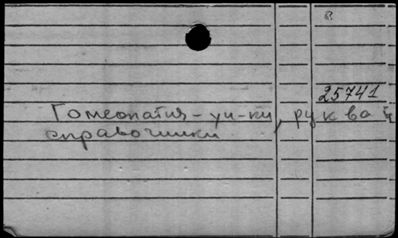 25741
Гомеопатия - уч-ки, рук-ва и
справочники